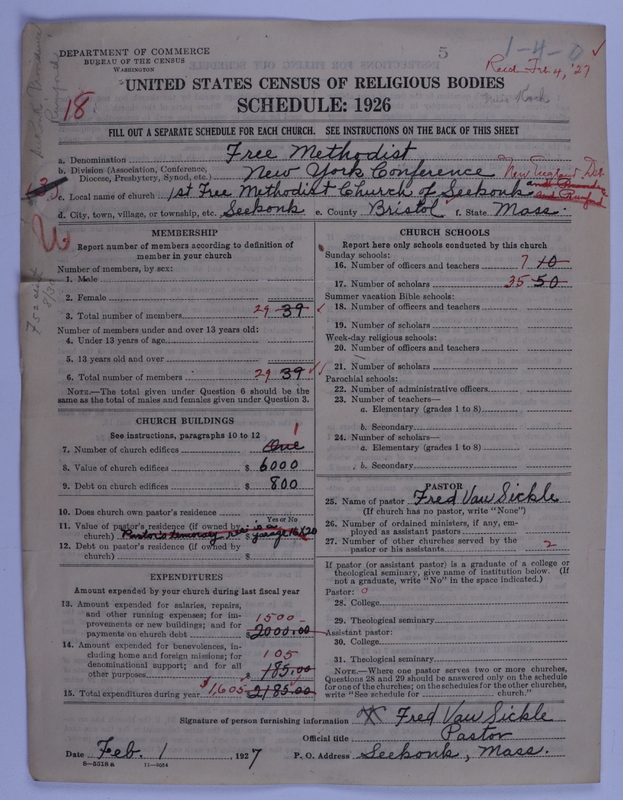 DEPARTMENT OF COMMERCE
BUREAU OF THE CENSUS
WASHINGTON
5
1-4-0 ✓
Recd Feb 4, '27
UNITED STATES CENSUS OF RELIGIOUS BODIES
18
SCHEDULE: 1926
FILL OUT A SEPARATE SCHEDULE FOR EACH CHURCH. SEE INSTRUCTIONS ON THE BACK OF THIS SHEET
a. Denomination Free Methodist
b. Division (Association, Conference, Diocese, Presbytery, Synod, etc.) New York Conference New England
c. Local name of church 1st Free Methodist Church of Seekonk and Rumford
d. City, town, village, or township, etc. Seekonk e. County Bristol f. State Mass.
MEMBERSHIP
Report number of members according to definition of
member in your church
Number of members, by sex:
1. Male
2. Female
3. Total number of members 29 39 ✓
Number of members under and over 13 years old:
4. Under 13 years of age
5. 13 years old and over
6. Total number of members 29 39 ✓✓
NOTE.—The total given under Question 6 should be the
same as the total of males and females given under Question 3.
CHURCH BUILDINGS
See instructions, paragraphs 10 to 12
7. Number of church edifices One 1
8. Value of church edifices $ 6000
9. Debt on church edifices $ 800
10. Does church own pastor's residence
Yes or No
11. Value of pastor's residence (if owned by
church) $ Pastor's temporary res. is a garage 16x20
12. Debt on pastor's residence (if owned by
church) $
EXPENDITURES
Amount expended by your church during last fiscal year
13. Amount expended for salaries, repairs,
and other running expenses; for im-
provements or new buildings; and for
payments on church debt $ 1500 2000.00
14. Amount expended for benevolences, in-
cluding home and foreign missions; for
denominational support; and for all
other purposes $ 105 185.00
15. Total expenditures during year $1,605 2185.00
CHURCH SCHOOLS
Report here only schools conducted by this church
Sunday schools:
16. Number of officers and teachers 7 10
17. Number of scholars 35 50
Summer vacation Bible schools:
18. Number of officers and teachers
19. Number of scholars
Week-day religious schools:
20. Number of officers and teachers
21. Number of scholars
Parochial schools:
22. Number of administrative officers
23. Number of teachers—
a. Elementary (grades 1 to 8)
b. Secondary
24. Number of scholars—
a. Elementary (grades 1 to 8)
b. Secondary
PASTOR
25. Name of pastor Fred Van Sickle
(If church has no pastor, write "None")
26. Number of ordained ministers, if any, em-
ployed as assistant pastors
27. Number of other churches served by the
pastor or his assistants 2
If pastor (or assistant pastor) is a graduate of a college or
theological seminary, give name of institution below. (If
not a graduate, write "No" in the space indicated.)
Pastor: 0
28. College
29. Theological seminary
Assistant pastor:
30. College
31. Theological seminary
NOTE.—Where one pastor serves two or more churches,
Questions 28 and 29 should be answered only on the schedule
for one of the churches; on the schedules for the other churches,
write "See schedule for church."
Signature of person furnishing information Fred Van Sickle
Official title Pastor
Date Feb. 1, 1927 P. O. Address Seekonk, Mass.
8—5318a 11—9054